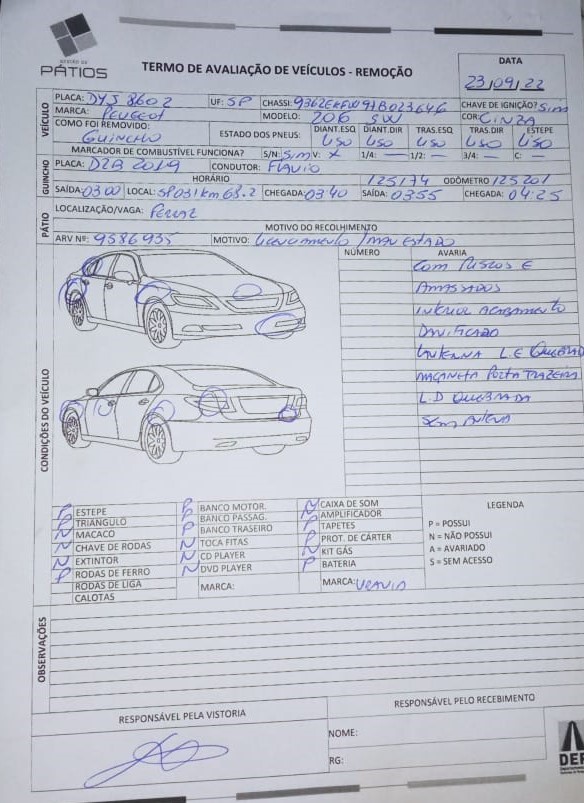 GESTÃO DE
PÁTIOS
TERMO DE AVALIAÇÃO DE VEÍCULOS - REMOÇÃO
DATA
23/09/22
VEÍCULO
PLACA: DYJ 8602 UF: SP CHASSI: CHAVE DE IGNIÇÃO? SIM
MARCA: PEUGEOT MODELO: 206 SW COR: CINZA
COMO FOI REMOVIDO: GUINCHO
ESTADO DOS PNEUS: DIANT.ESQ DIANT.DIR TRAS.ESQ TRAS.DIR ESTEPE
LISO LISO LISO LISO LISO
MARCADOR DE COMBUSTÍVEL FUNCIONA? S/N: SIM V: X 1/4: — 1/2: — 3/4: — C: —
GUINCHO
PLACA: CONDUTOR: FLAVIO
HORÁRIO 125174 ODÔMETRO 125201
SAÍDA: 03:00 LOCAL: SP031 km 63.2 CHEGADA: 03:40 SAÍDA: 03:55 CHEGADA: 04:25
PÁTIO
LOCALIZAÇÃO/VAGA: FERRAZ
MOTIVO DO RECOLHIMENTO
ARV Nº: 9586935 MOTIVO: Licenciamento / MAU ESTADO
CONDIÇÕES DO VEÍCULO
NÚMERO AVARIA
COM RISCOS E
AMASSADOS
INTERIOR ACABAMENTO
DANIFICADO
LANTERNA L.E QUEBRAD
MAÇANETA PORTA TRAZEIRA
L.D QUEBRADA
SEM ANTENA
P ESTEPE
P TRIANGULO
N MACACO
N CHAVE DE RODAS
N EXTINTOR
P RODAS DE FERRO
RODAS DE LIGA
CALOTAS
P BANCO MOTOR.
P BANCO PASSAG.
P BANCO TRASEIRO
N TOCA FITAS
N CD PLAYER
N DVD PLAYER
MARCA:
N CAIXA DE SOM
N AMPLIFICADOR
P TAPETES
P PROT. DE CÁRTER
N KIT GÁS
P BATERIA
MARCA:
LEGENDA
P = POSSUI
N = NÃO POSSUI
A = AVARIADO
S = SEM ACESSO
OBSERVAÇÕES
RESPONSÁVEL PELA VISTORIA
RESPONSÁVEL PELO RECEBIMENTO
NOME:
RG:
DER